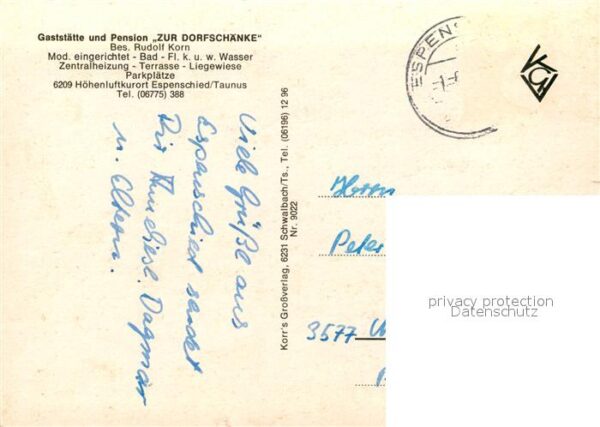 Gaststätte und Pension „ZUR DORFSCHÄNKE“
Bes. Rudolf Korn
Mod. eingerichtet - Bad - Fl. k. u. w. Wasser
Zentralheizung - Terrasse - Liegewiese
Parkplätze
6209 Höhenluftkurort Espenschied/Taunus
Tel. (06775) 388
Viele Grüße aus
Espenschied sendet
Dir
Dagmar
u. Eltern.
Korr's Großverlag, 6231 Schwalbach/Ts., Tel. (06196) 12 96
Nr. 9022
ESPENS
Herrn
Peter
3577
privacy protection
Datenschutz